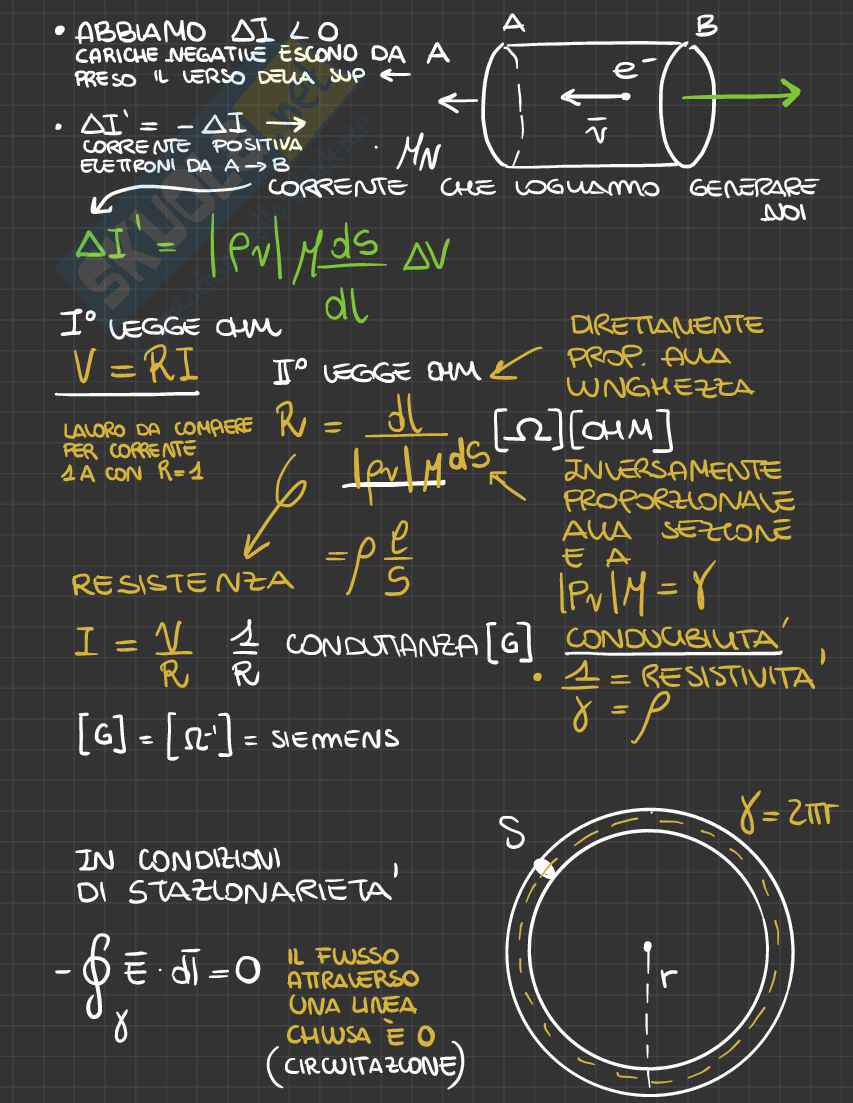 • ABBIAMO ΔI < 0
CARICHE NEGATIVE ESCONO DA A
PRESO IL VERSO DELLA SUP ←
A
B
e⁻
v̄
• ΔI' = -ΔI →
CORRENTE POSITIVA
ELETTRONI DA A → B
· μN
CORRENTE CHE VOGLIAMO GENERARE
NOI
ΔI' = |ρv| μ ds/dl ΔV
I° LEGGE OHM
V = RI
LAVORO DA COMPIERE
PER CORRENTE
1 A CON R=1
II° LEGGE OHM
DIRETTAMENTE
PROP. ALLA
LUNGHEZZA
R = dl/|ρv| μ ds [Ω][OHM]
INVERSAMENTE
PROPORZIONALE
ALLA SEZIONE
E A
|ρv| μ = γ
CONDUCIBILITA'
• 1/γ = RESISTIVITA'
= ρ
= ρ l/S
RESISTENZA
I = V/R 1/R CONDUTTANZA [G]
[G] = [Ω⁻¹] = SIEMENS
IN CONDIZIONI
DI STAZIONARIETA'
-∮γ Ē · dl̄ = 0
IL FLUSSO
ATTRAVERSO
UNA LINEA
CHIUSA È 0
(CIRCUITAZIONE)
S
γ = 2πr
r
SKUOLA.net